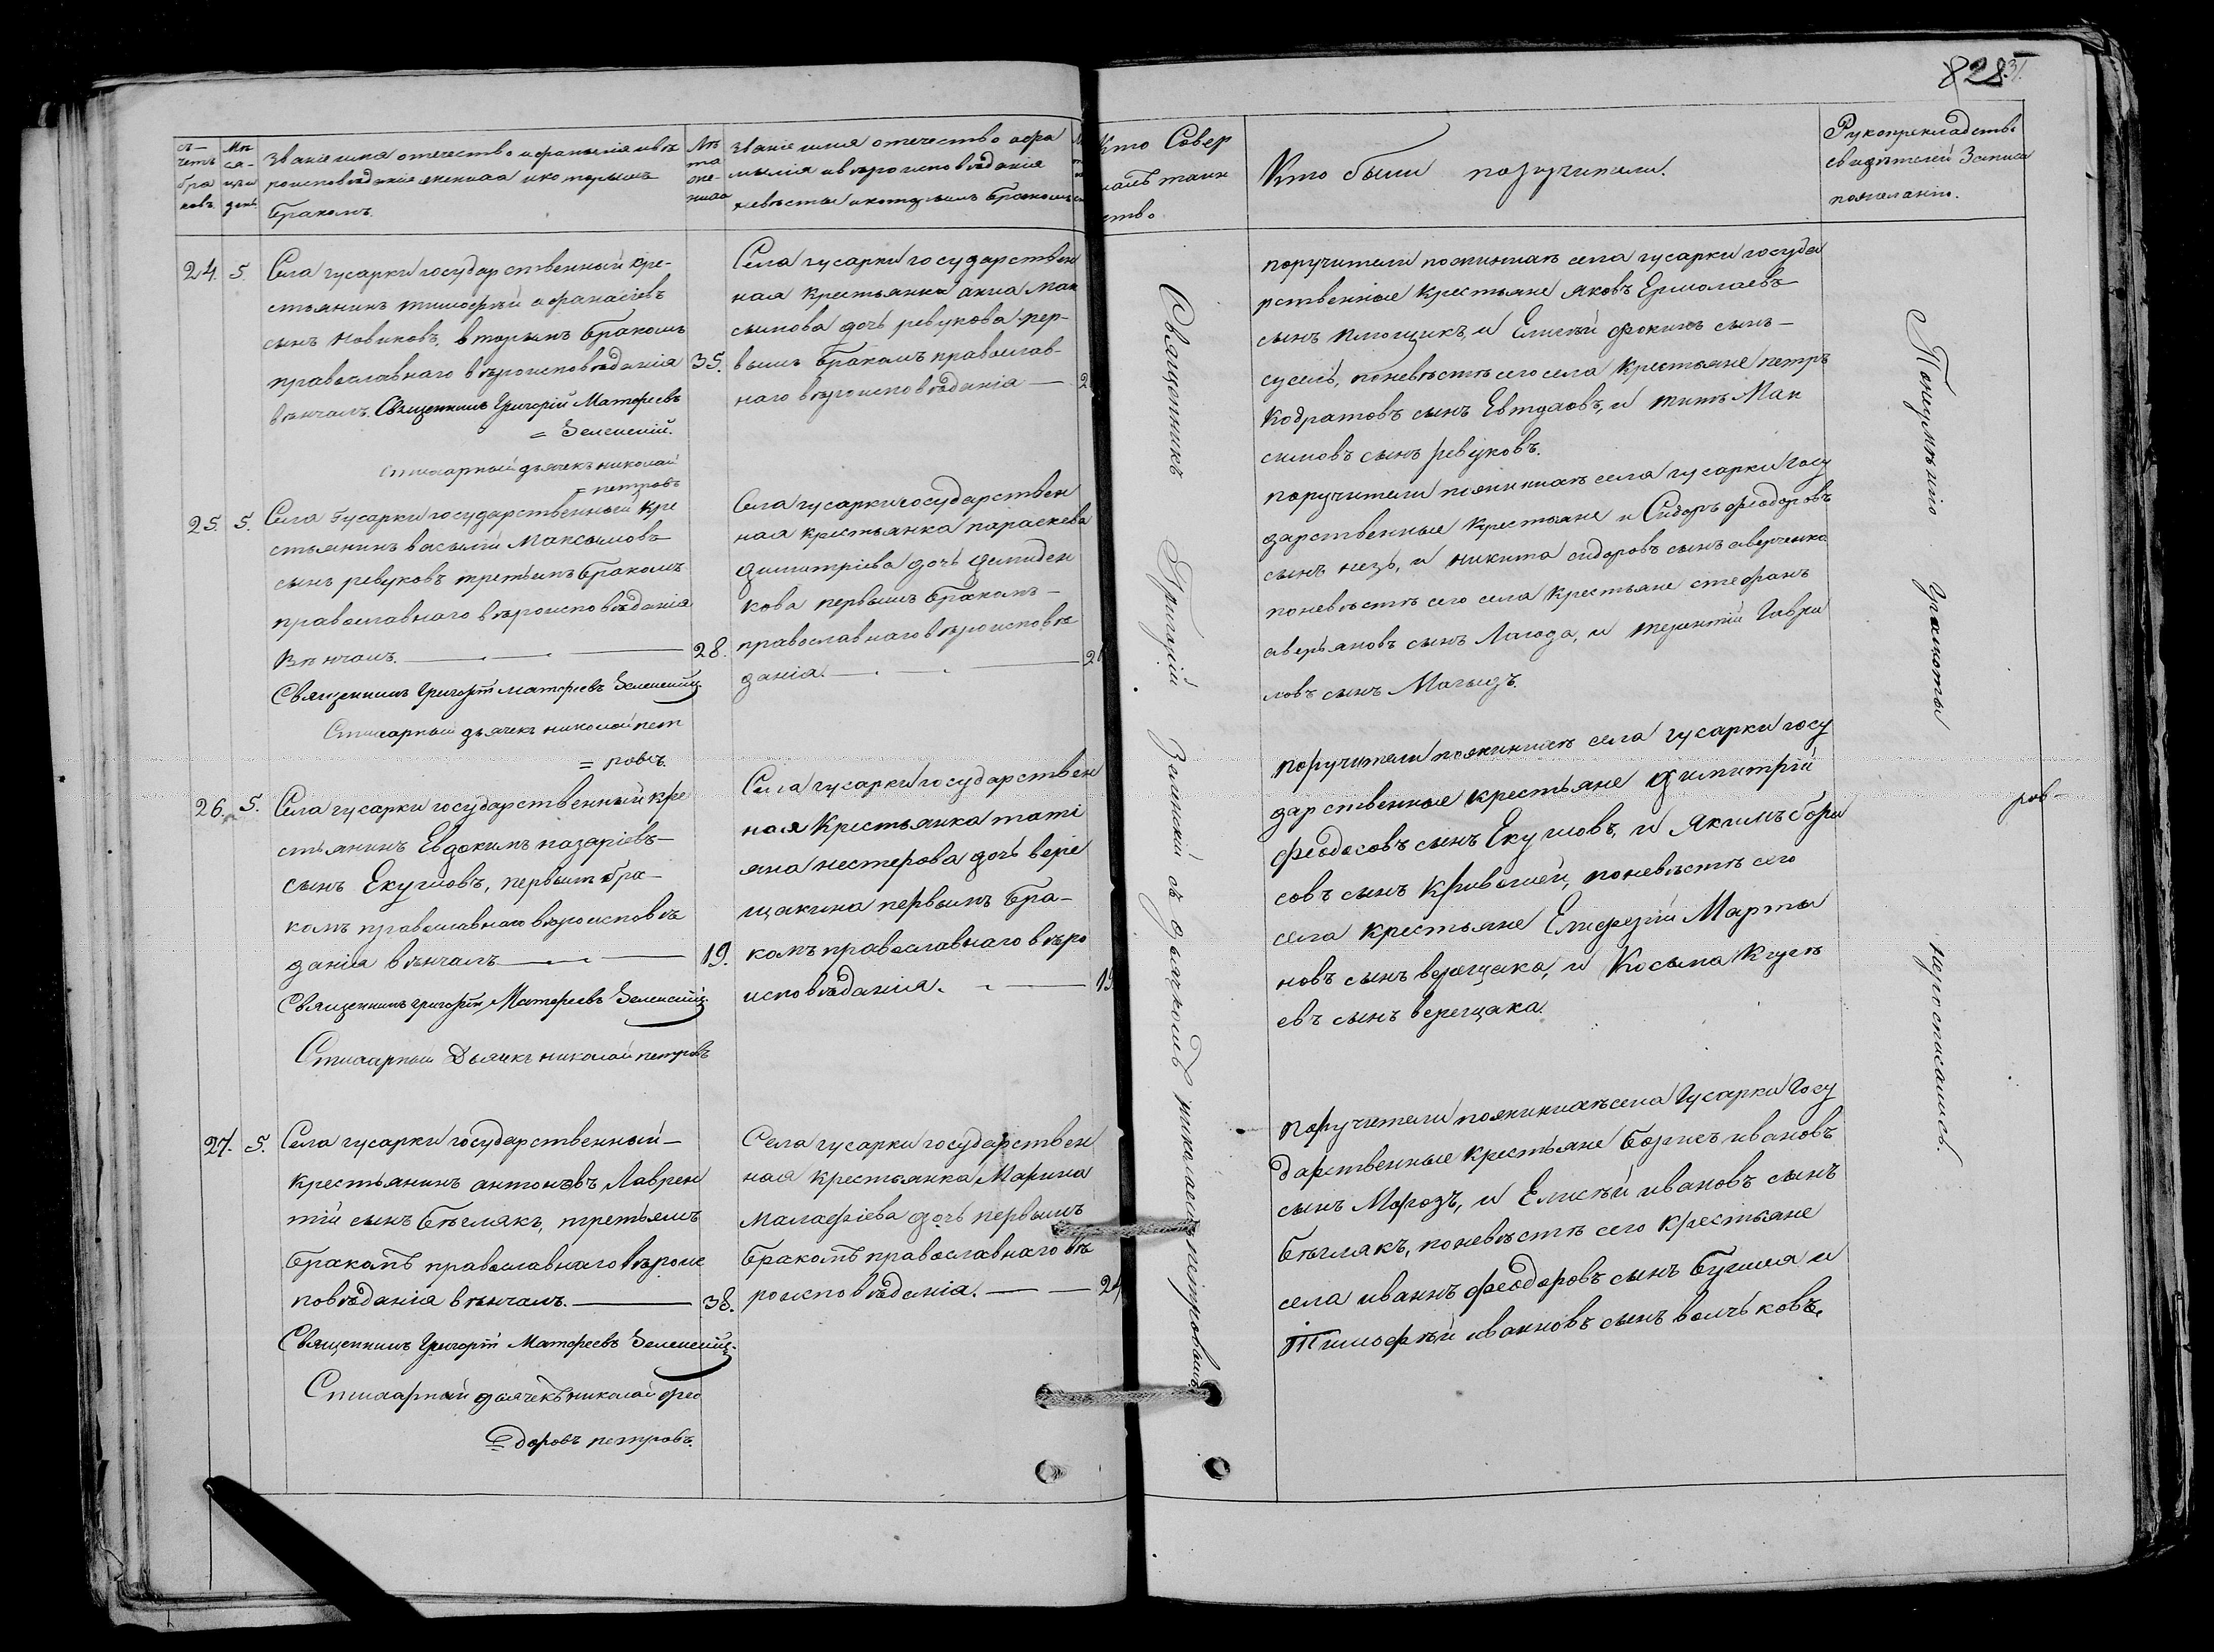 828 31.
Счетъ браковъ
Мѣсяцъ и день
Званіе имя отечество и фамилія и вѣ
роисповѣданіе жениха и которымъ
бракомъ.
Лѣта жениха
Званіе имя отечество и фа
милія и вѣроисповѣданія
невѣсты и которымъ бракомъ
Кто Совер
шалъ таин
ство
Кто были поручители.
Рукоприкладство
свидѣтелей Записи
пожеланію.
24. 5. Села гусарки государственный кре-
стьянинъ тимофѣй афанасіевъ
сынъ Новиковъ, вторымъ бракомъ
православнаго вѣроисповѣданія 35.
вѣнчалъ. Священникъ Григорій Матфеевъ
= Зеленскій.
Стихарный дьячекъ николай
= петровъ
Села гусарки государствен
ная Крестьянка анна Мак
симова дочь ревукова пер-
вымъ бракомъ православ-
наго вѣроисповѣданія — 2
поручители по женихѣ села гусарки госуда
рственные Крестьяне яковъ Ермолаевъ
сынъ и Елисѣй фокинъ сынъ —
сусь, по невѣстѣ сего села Крестьяне петръ
Кодратовъ сынъ и титъ Мак
симовъ сынъ ревуковъ.
25. 5. Села Гусарки государственный кре
стьянинъ василій Максимовъ
сынъ ревуковъ третьимъ бракомъ
православнаго вѣроисповѣданія
Вѣнчалъ. — 28.
Священникъ Григорій матфеевъ Зеленскій
Стихарный дьячекъ николай пет
= ровъ.
Села гусарки государствен
ная крестьянка параскева
димитріева дочь демиден
кова первымъ бракомъ —
православнаго вѣроисповѣ
данія. — 2
поручители по женихѣ села гусарки госу
дарственные Крестьяне и Сидоръ феодоровъ
сынъ и никита сидоровъ сынъ аверченко
по невѣстѣ сего села Крестьяне стефанъ
аверьяновъ сынъ Лагода, и терентій Гаври
ловъ сынъ
26. 5. Села гусарки государственный кре
стьянинъ Евдокимъ назаріевъ —
сынъ Екушовъ, первымъ бра-
комъ православнаго вѣроисповѣ
данія вѣнчалъ — 19.
Священникъ григорій Матфеевъ Зеленскій.
Стихарный Дьячекъ николай петровъ
Села гусарки государствен
ная Крестьянка тати
яна нестерова дочь вере
щакина первымъ бра-
комъ православнаго вѣро
исповѣданія. — 19
поручители по женихѣ села гусарки госу
дарственные крестьяне димитрій
феодосовъ сынъ Екушовъ, и Якимъ бори
совъ сынъ Кривошей, по невѣстѣ сего
села крестьяне Елиферій Марты
новъ сынъ верещака, и Косьма
евъ сынъ верещака.
27. 5. Села гусарки государственный —
крестьянинъ антоновъ Лаврен
тій сынъ бѣглякъ, третьимъ
бракомъ православнаго вѣроис
повѣданія вѣнчалъ. — 38.
Священникъ Григорій Матфеевъ Зеленскій.
Стихарный дьячекъ николай фео
= доровъ петровъ.
Села гусарки государствен
ная крестьянка Марина
Малафіева дочь первымъ
бракомъ православнаго вѣ
роисповѣданія. — 24
поручители по женихѣ села Гусарки Госу
дарственные крестьяне борисъ ивановъ
сынъ Морозъ, и Елисѣй ивановъ сынъ
бѣглякъ, по невѣстѣ сего крестьяне
села иванъ феодоровъ сынъ и
Тимофѣй ивановъ сынъ волчьковъ.
Священникъ Григорій Зеленскій съ дьячкомъ николаемъ петровымъ
По неумѣнію грамоты не росписались.
ров-